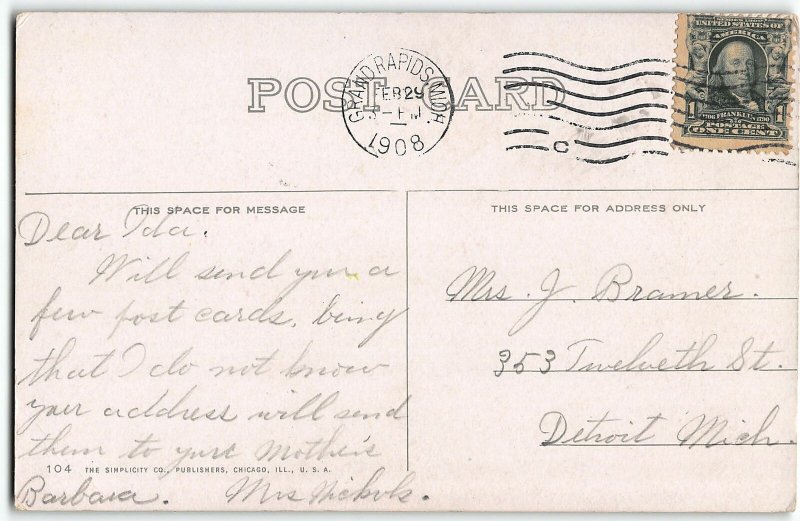 POST CARD
GRAND RAPIDS, MICH.
FEB 29
1908
C
SERIES 1902
UNITED STATES OF
AMERICA
1706 FRANKLIN 1790
POSTAGE
1 ONE CENT 1
THIS SPACE FOR MESSAGE
Dear Ida.
Will send you a
few post cards, being
that I do not know
your address will send
them to your Mother's
104 THE SIMPLICITY CO., PUBLISHERS, CHICAGO, ILL., U. S. A.
Barbara. Mrs Nickols.
THIS SPACE FOR ADDRESS ONLY
Mrs. J. Bramer.
353 Twelveth St.
Detroit Mich.